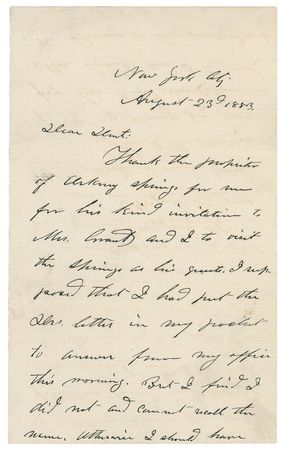 New York City,
August 23d 1883.
Dear Dent:
Thank the proprietor
of springs for me
for his kind invitation to
Mrs. Grant and I to visit
the springs as his guests. I sup-
posed that I had put the
Drs. letter in my pocket
to answer from my office
this morning. But I find I
did not and cannot recall the
name. Otherwise I should have